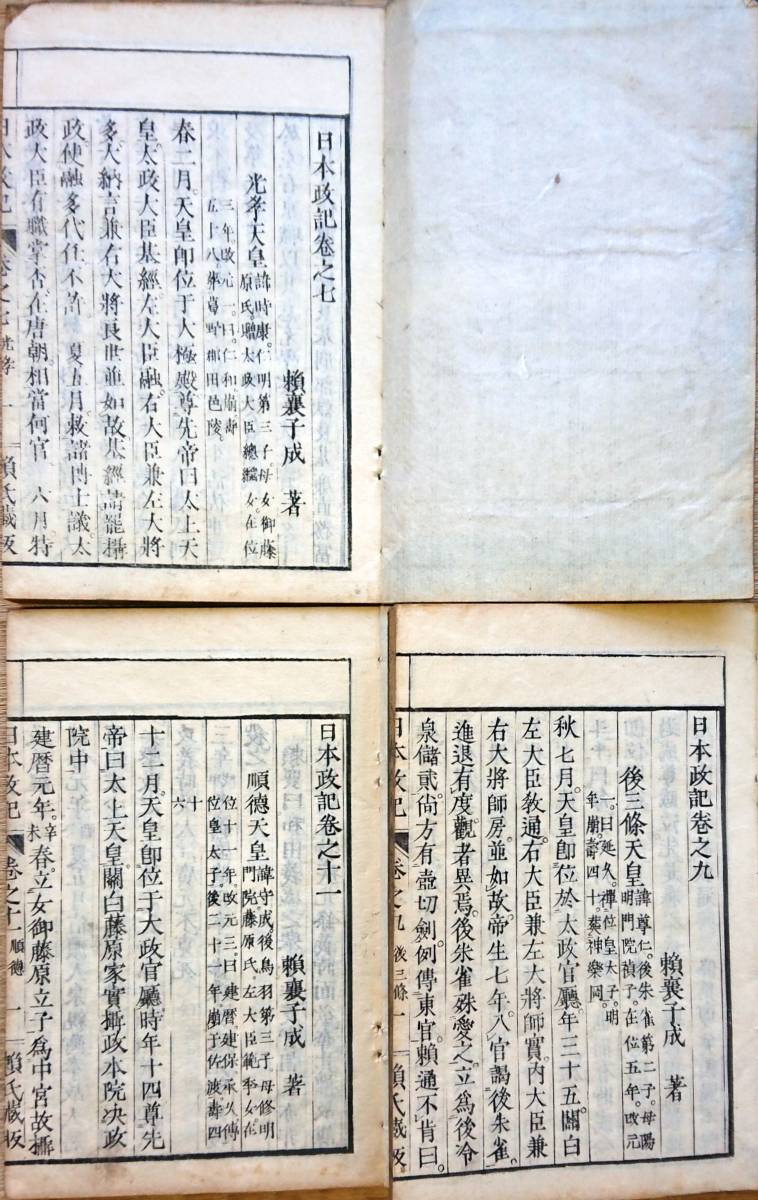 日本政記卷之七
賴襄子成 著
光孝天皇 諱時康。仁明第三子。母女御藤
原氏。贈太政大臣總繼女。在位
三年。改元一。曰。仁和。崩。壽
五十八。葬葛野郡田邑陵。
春二月。天皇即位于大極殿。尊先帝曰太上天
皇。太政大臣基經。左大臣融。右大臣兼左大將
多。大納言兼右大將良世並如故。基經請罷攝
政。使融多代任。不許。 夏五月。敕諸博士議。太
政大臣有職掌否。在唐朝。相當何官 六月特
日本政記 卷之七 光孝 一 賴氏藏板
日本政記卷之九
賴襄子成 著
後三條天皇 諱尊仁。後朱雀第二子。母陽
明門院禎子。在位五年。改元
一。曰延久。禪位皇太子。明
年崩。壽四十。葬神樂岡。
秋七月。天皇即位於太政官廳。年三十五。關白
左大臣敎通。右大臣兼左大將師實。內大臣兼
右大將師房。並如故。帝生七年。入官謁後朱雀。
進退有度。觀者異焉。後朱雀殊愛之。立爲後冷
泉儲貳。尙方有壺切劍。例傳東宮。賴通不肯曰。
日本政記 卷之九 後三條 一 賴氏藏板
日本政記卷之十一
賴襄子成 著
順德天皇 諱守成。後鳥羽第三子。母修明
門院藤原氏。左大臣範季女。在
位十一年。改元三。曰建曆。建保。承久。傳
位皇太子。後二十一年崩于佐渡。壽四
十
六
十二月。天皇即位于大政官廳。時年十四。尊先
帝曰太上天皇。關白藤原家實攝政。本院决政
院中
建曆元年。辛未 春。立女御藤原立子爲中宮。故攝
日本政記 卷之十一 順德 一 賴氏藏板